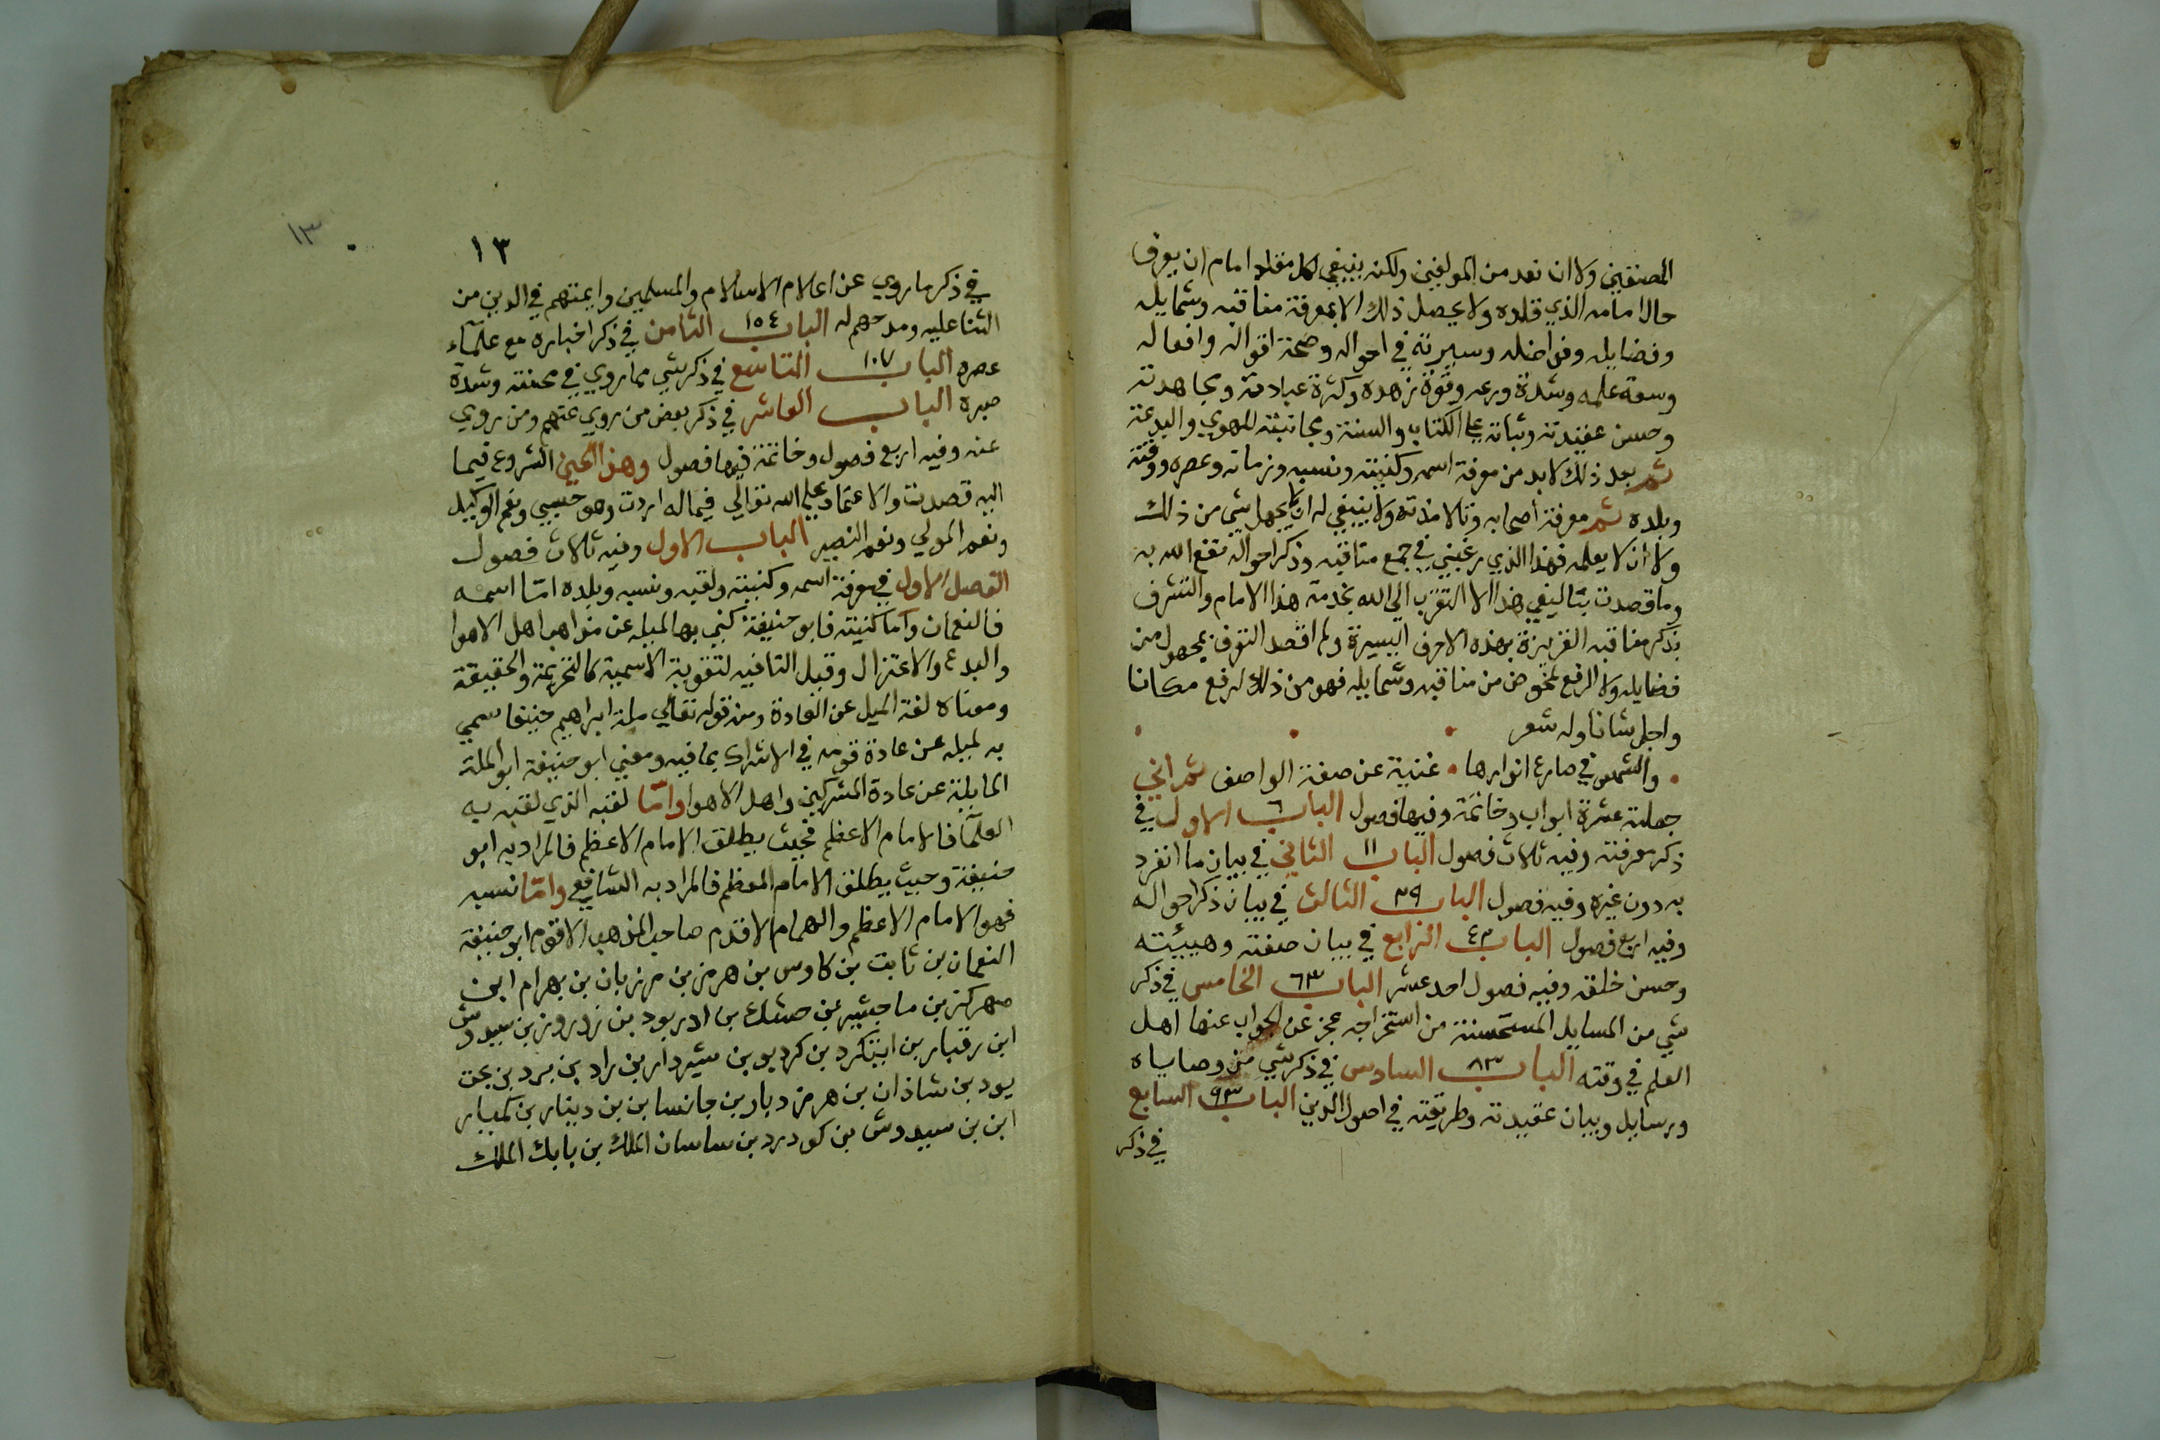 المصنفين ولا ان نعد من المولفين ولكن ينبغي لكل مقلد امام ان يعرف
حال امامه الذي قلده ولا يحصل ذلك الا بمعرفة مناقبه وشمايله
وفضايله وفواضله وسيرته في احواله وصحة اقواله وافعاله
وسعة علمه وشدة ورعه وقوة زهده وكثرة عبادته ومجاهدته
وحسن عقيدته وثباته على الكتاب والسنة ومجانبته للهوي والبدعة
ثم بعد ذلك لابد من معرفة اسمه وكنيته ونسبه وزمانه وعصره ووقته
وبلده ثم معرفة اصحابه وتلامذته ولا ينبغي له ان يجهل شي من ذلك
ولا ان لا يعلمه فهذا الذي رغبني في جمع مناقبه وذكر احواله نفع الله به
وما قصدت بتاليفي هذا الا التقرب الى الله بخدمة هذا الامام والتشرف
بذكر مناقبه الغزيرة بهذه الاحرف اليسيرة ولم اقصد التعرف بمجهول من
فضايله ولا الرفع لمخفوض من مناقبه وشمايله فهو من ذلك ارفع مكانا
واجل شانا وله شعر
والشمس في صارع انوارها غنية عن صفة الواصف ثم اني
جعلته عشرة ابواب وخاتمة وفيها فصول الباب ٦ الاول في
ذكر معرفته وفيه ثلاث فصول الباب ١١ الثاني في بيان ما انفرد
به دون غيره وفيه فصول الباب ٣٩ الثالث في بيان ذكر احواله
وفيه اربع فصول الباب ٤٣ الرابع في بيان صفته وهيئته
وحسن خلقه وفيه فصول احد عشر الباب ٦٣ الخامس في ذكر
شي من المسايل المستحسنة من استخراجه عجز عن الجواب عنها اهل
العلم في وقته الباب ٨٣ السادس في ذكر شي من وصاياه
ورسايل وبيان عقيدته وطريقته في اصول الدين الباب ٩٣ السابع
في ذكر
١٣
١٣
في ذكر ما روي عن اعلام الاسلام والمسلمين وايمتهم في الدين من
الثنا عليه ومدحهم له الباب ١٥٤ الثامن في ذكر اخباره مع علماء
عصره الباب ١٠٧ التاسع في ذكر شي مما روي في محنته وشدة
صبره الباب العاشر في ذكر بعض من روي عنهم ومن روي
عنه وفيه اربع فصول وخاتمة فيها فصول وهذا حين الشروع فيما
اليه قصدت والاعتماد على الله تعالي فيما له اردت وهو حسبي ونعم الوكيل
ونعم المولي ونعم النصير الباب الاول وفيه ثلاث فصول
الفصل الاول في معرفة اسمه وكنيته ولقبه ونسبه وبلده امّا اسمه
فالنعمان وأما كنيته فابو حنيفة كني بها لميله عن مذاهب اهل الاهوا
والبدع والاعتزال وقيل التانيه لتقوية الاسمية كالخزيمة والحقيقة
ومعناه لغة الميل عن العادة ومنه قوله تعالي ملة ابراهيم حنيفا سمي
به لميله عن عادة قومه في الاشراك بما فيه ومعني ابو حنيفة ابو الملة
المايلة عن عادة المشركين واهل الاهوا وامّا لقبه الذي لقبه به
العلمآ فالامام الاعظم فحيث يطلق الامام الاعظم فالمراد به ابو
حنيفة وحيث يطلق الامام المعظم فالمراد به الشافعي وامّا نسبه
فهو الامام الاعظم والهمام الاقدم صاحب المذهب الاقوم ابو حنيفة
النعمان بن ثابت بن كاوس بن هرمز بن مرزبان بن بهرام ابن
مهركز بن ماجشير بن حشك بن ادربود بن زوروز بن سيدوش
ابن رقبار بن ايتكرد بن كرديو بن شيردار بن راد بن برد بن بحت
يود بن شاذان بن هرمز ديار بن جانسا بن بن دينار بن كميار
ابن بن سيدوش بن كودرد بن ساسان الملك بن بابك الملك